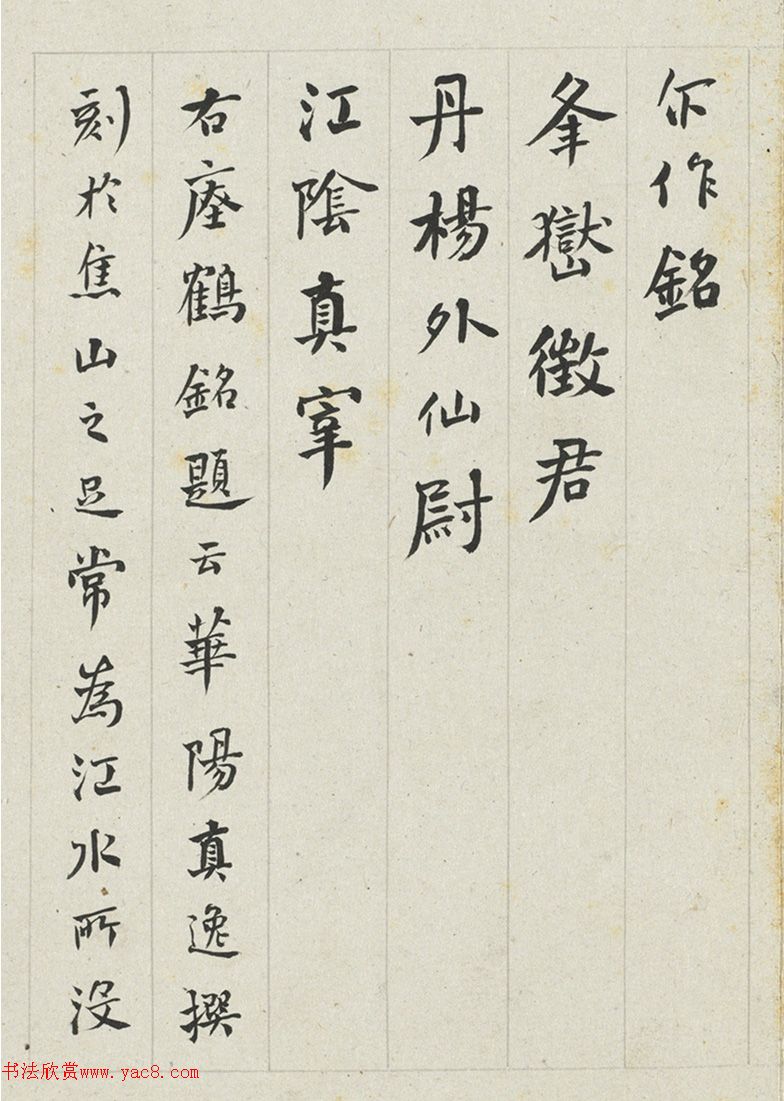 尒作銘
夆嶽徵君
丹楊外仙尉
江陰真宰
右瘞鶴銘題云華陽真逸撰
刻於焦山之足常為江水所沒
书法欣赏www.yac8.com